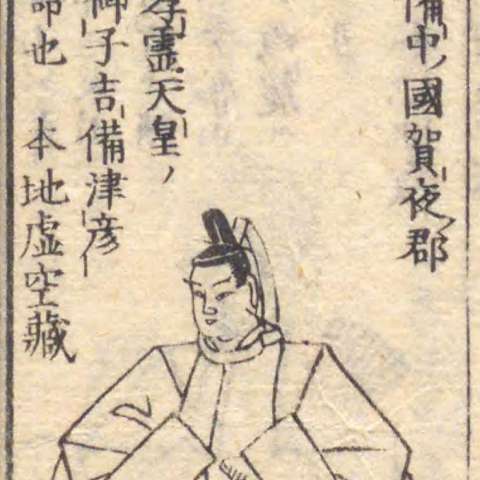 備中ノ國賀夜郡
孝霊天皇ノ
御子吉備津彦
命也 本地虚空蔵